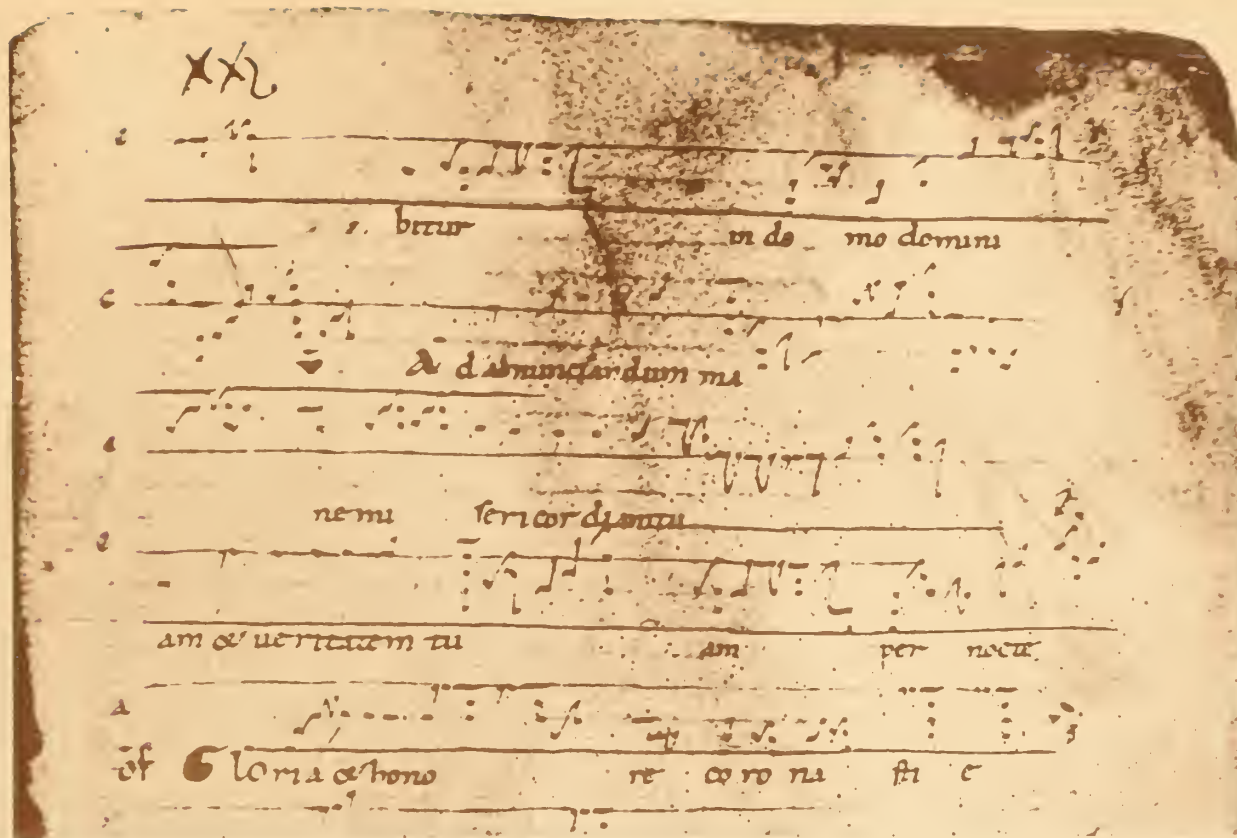 XX
bitur in do mo domini
A d adnunciandum ma
ne mi sericordiam tu
am & ueritatem tu am per nocte
of Gloria & hono re co ro na sti e